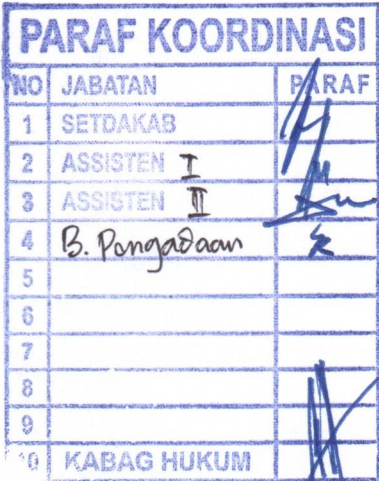 PARAF KOORDINASI
NO JABATAN PARAF
1 SETDAKAB
2 ASSISTEN I
3 ASSISTEN III
4 B. Pengadaan
5
6
7
8
9
10 KABAG HUKUM